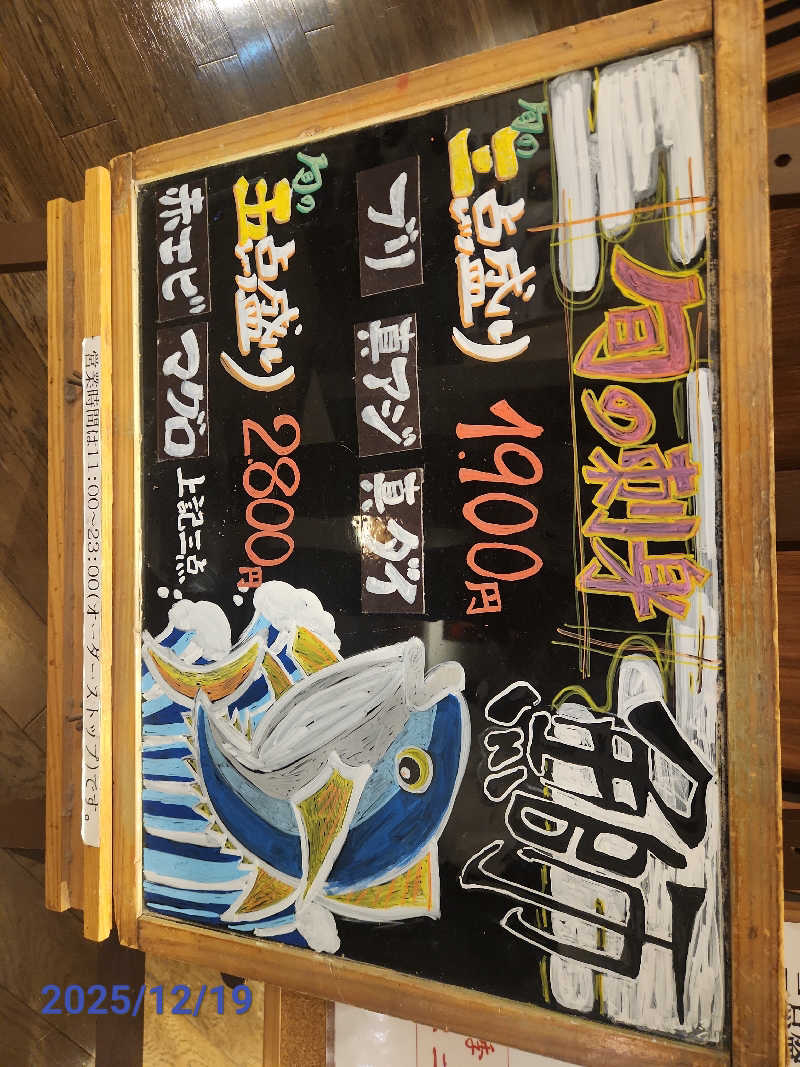 旬の刺身
鰤
旬の
三点盛り 1,900円
ブリ 真アジ 真ダイ
旬の
五点盛り 2,800円
赤エビ マグロ 上記三点...
営業時間は11:00~23:00(オーダーストップ)です。
2025/12/19